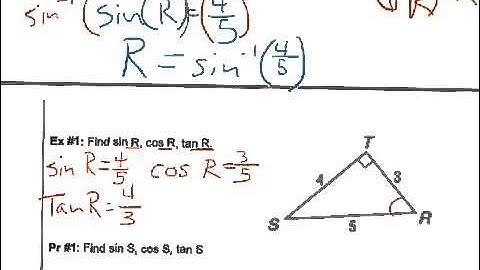 sin⁻¹(sin(R)=(4/5)
R = sin⁻¹(4/5)
Ex #1: Find sin R, cos R, tan R.
sin R=4/5 cos R=3/5
Tan R=4/3
T
4 3
S 5 R
Pr #1: Find sin S, cos S, tan S